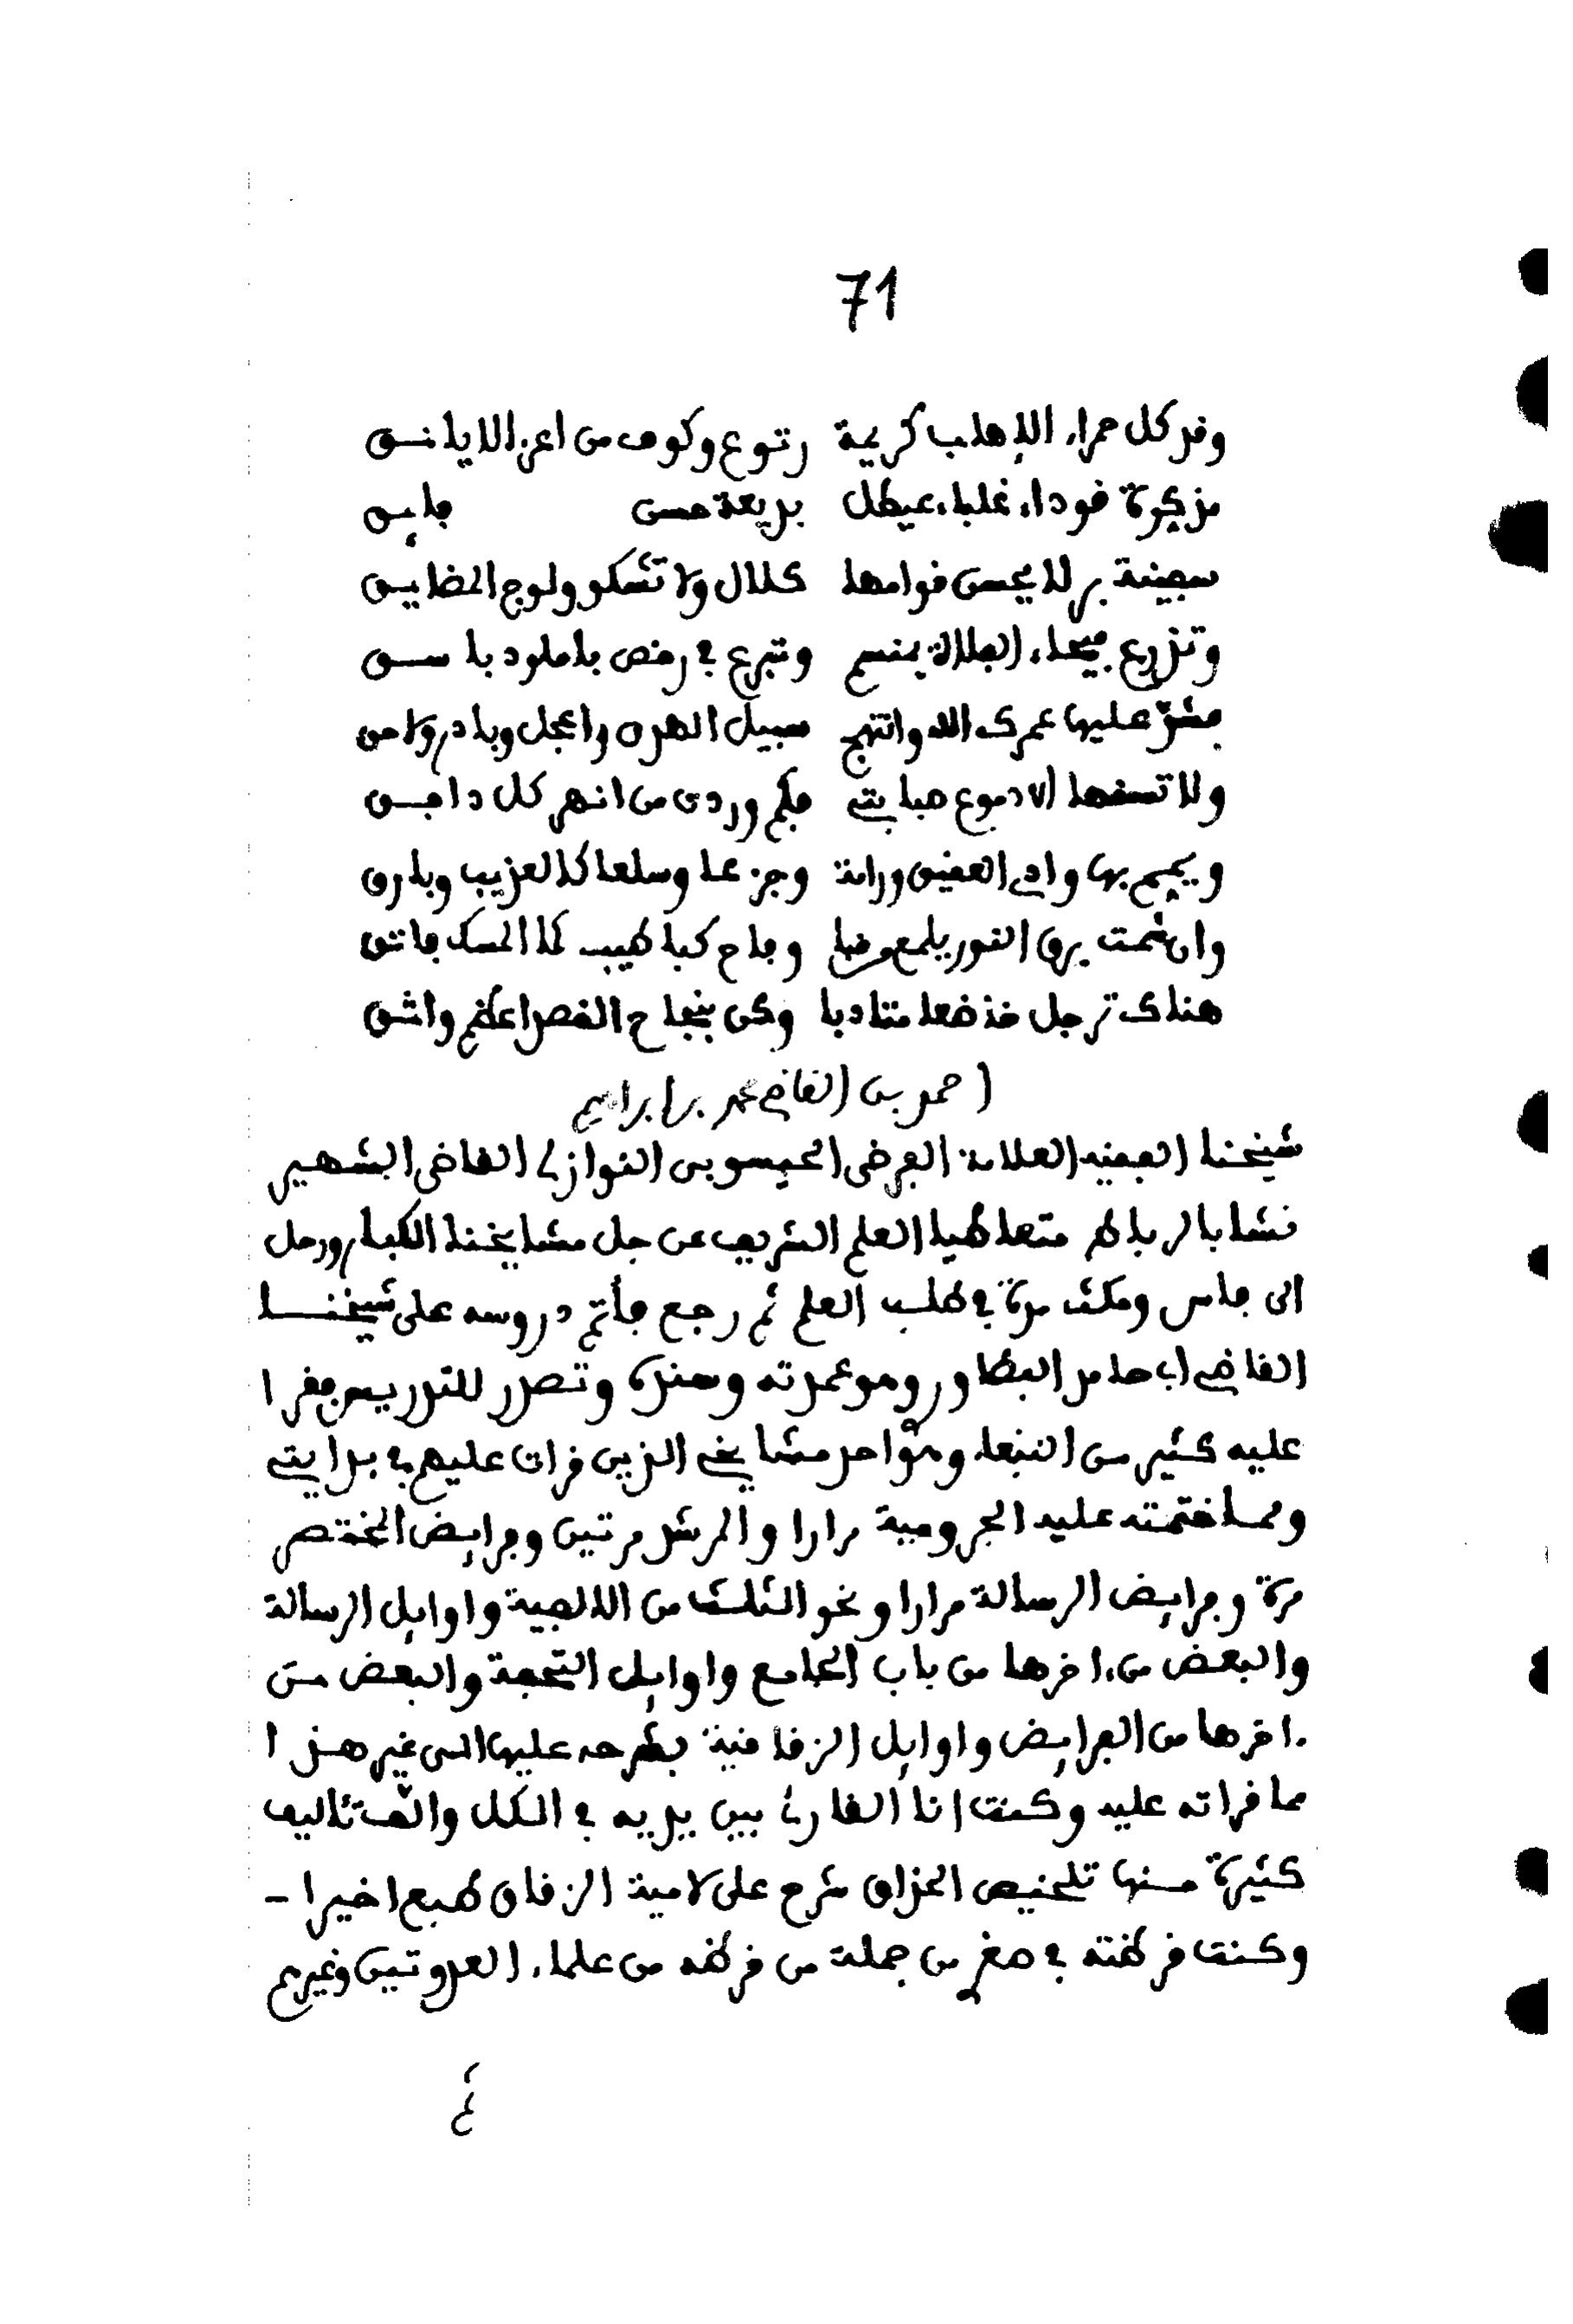 71
وقد كل حمراء الإهاب كريمة رتوع وكوف من اعز الايانق
مذكرة قوداء غلباء عيطل بديعة حسن فايق
سفينة بر لا يحس قوامها كلال ولا تشكو ولوج المضايق
وتزرع فيحاء الفلاة بمنسم وتبرع في رقص باملود باسق
فشق عليها عمرك الله وانتهج سبيل الهدى واعجل وبادر ولاحق
ولا تسقها الا دموع صبابتي فكم وردت من انهر كل دافق
ويمم بها وادي العقيق ورامة وجزعا وسلعا كالعذيب وبارق
وان شمت برق النور يلمع مرضيا وفاح كبا طيب كالمسك فاتق
هناك ترجل خضعا متادبا وكن بنجاح القصد اعظم واثق
احمد بن القاضي محمد بن ابراهيم
شيخنا الفقيه العلامة الفرضي الحيسوبي النوازلي القاضي الشهير
نشا بالرباط متعاطيا العلم الشريف عن جل مشايخنا الكبار ورحل
الى فاس ومكث مدة في طلب العلم ثم رجع فأتم دروسه على شيخنا
القاضي ابي حامد البطاوري وهو عمدته وسنده وتصدر للتدريس فقرا
عليه كثير من النبغاء وهو احد مشايخي الذين قرات عليهم في بدايتي
ومما ختمته عليه الجرومية مرارا والمرشد مرتين وفرايض المختصر
مرة وفرايض الرسالة مرارا ونحو الثلث من الالفية واوايل الرسالة
والبعض من ءاخرها من باب الجامع واوايل التحفة والبعض من
ءاخرها من الفرايض واوايل الزقاقية بطرحه عليها الى غير هذا
مما قراته عليه وكنت انا القارئ بين يديه في الكل والف تئاليف
كثيرة منها تلخيص الحذاق شرح على لامية الزقاق طبع اخيرا -
وكنت قرظته في صغري من جملة من قرظه من علماء العدوتين وغيرهم